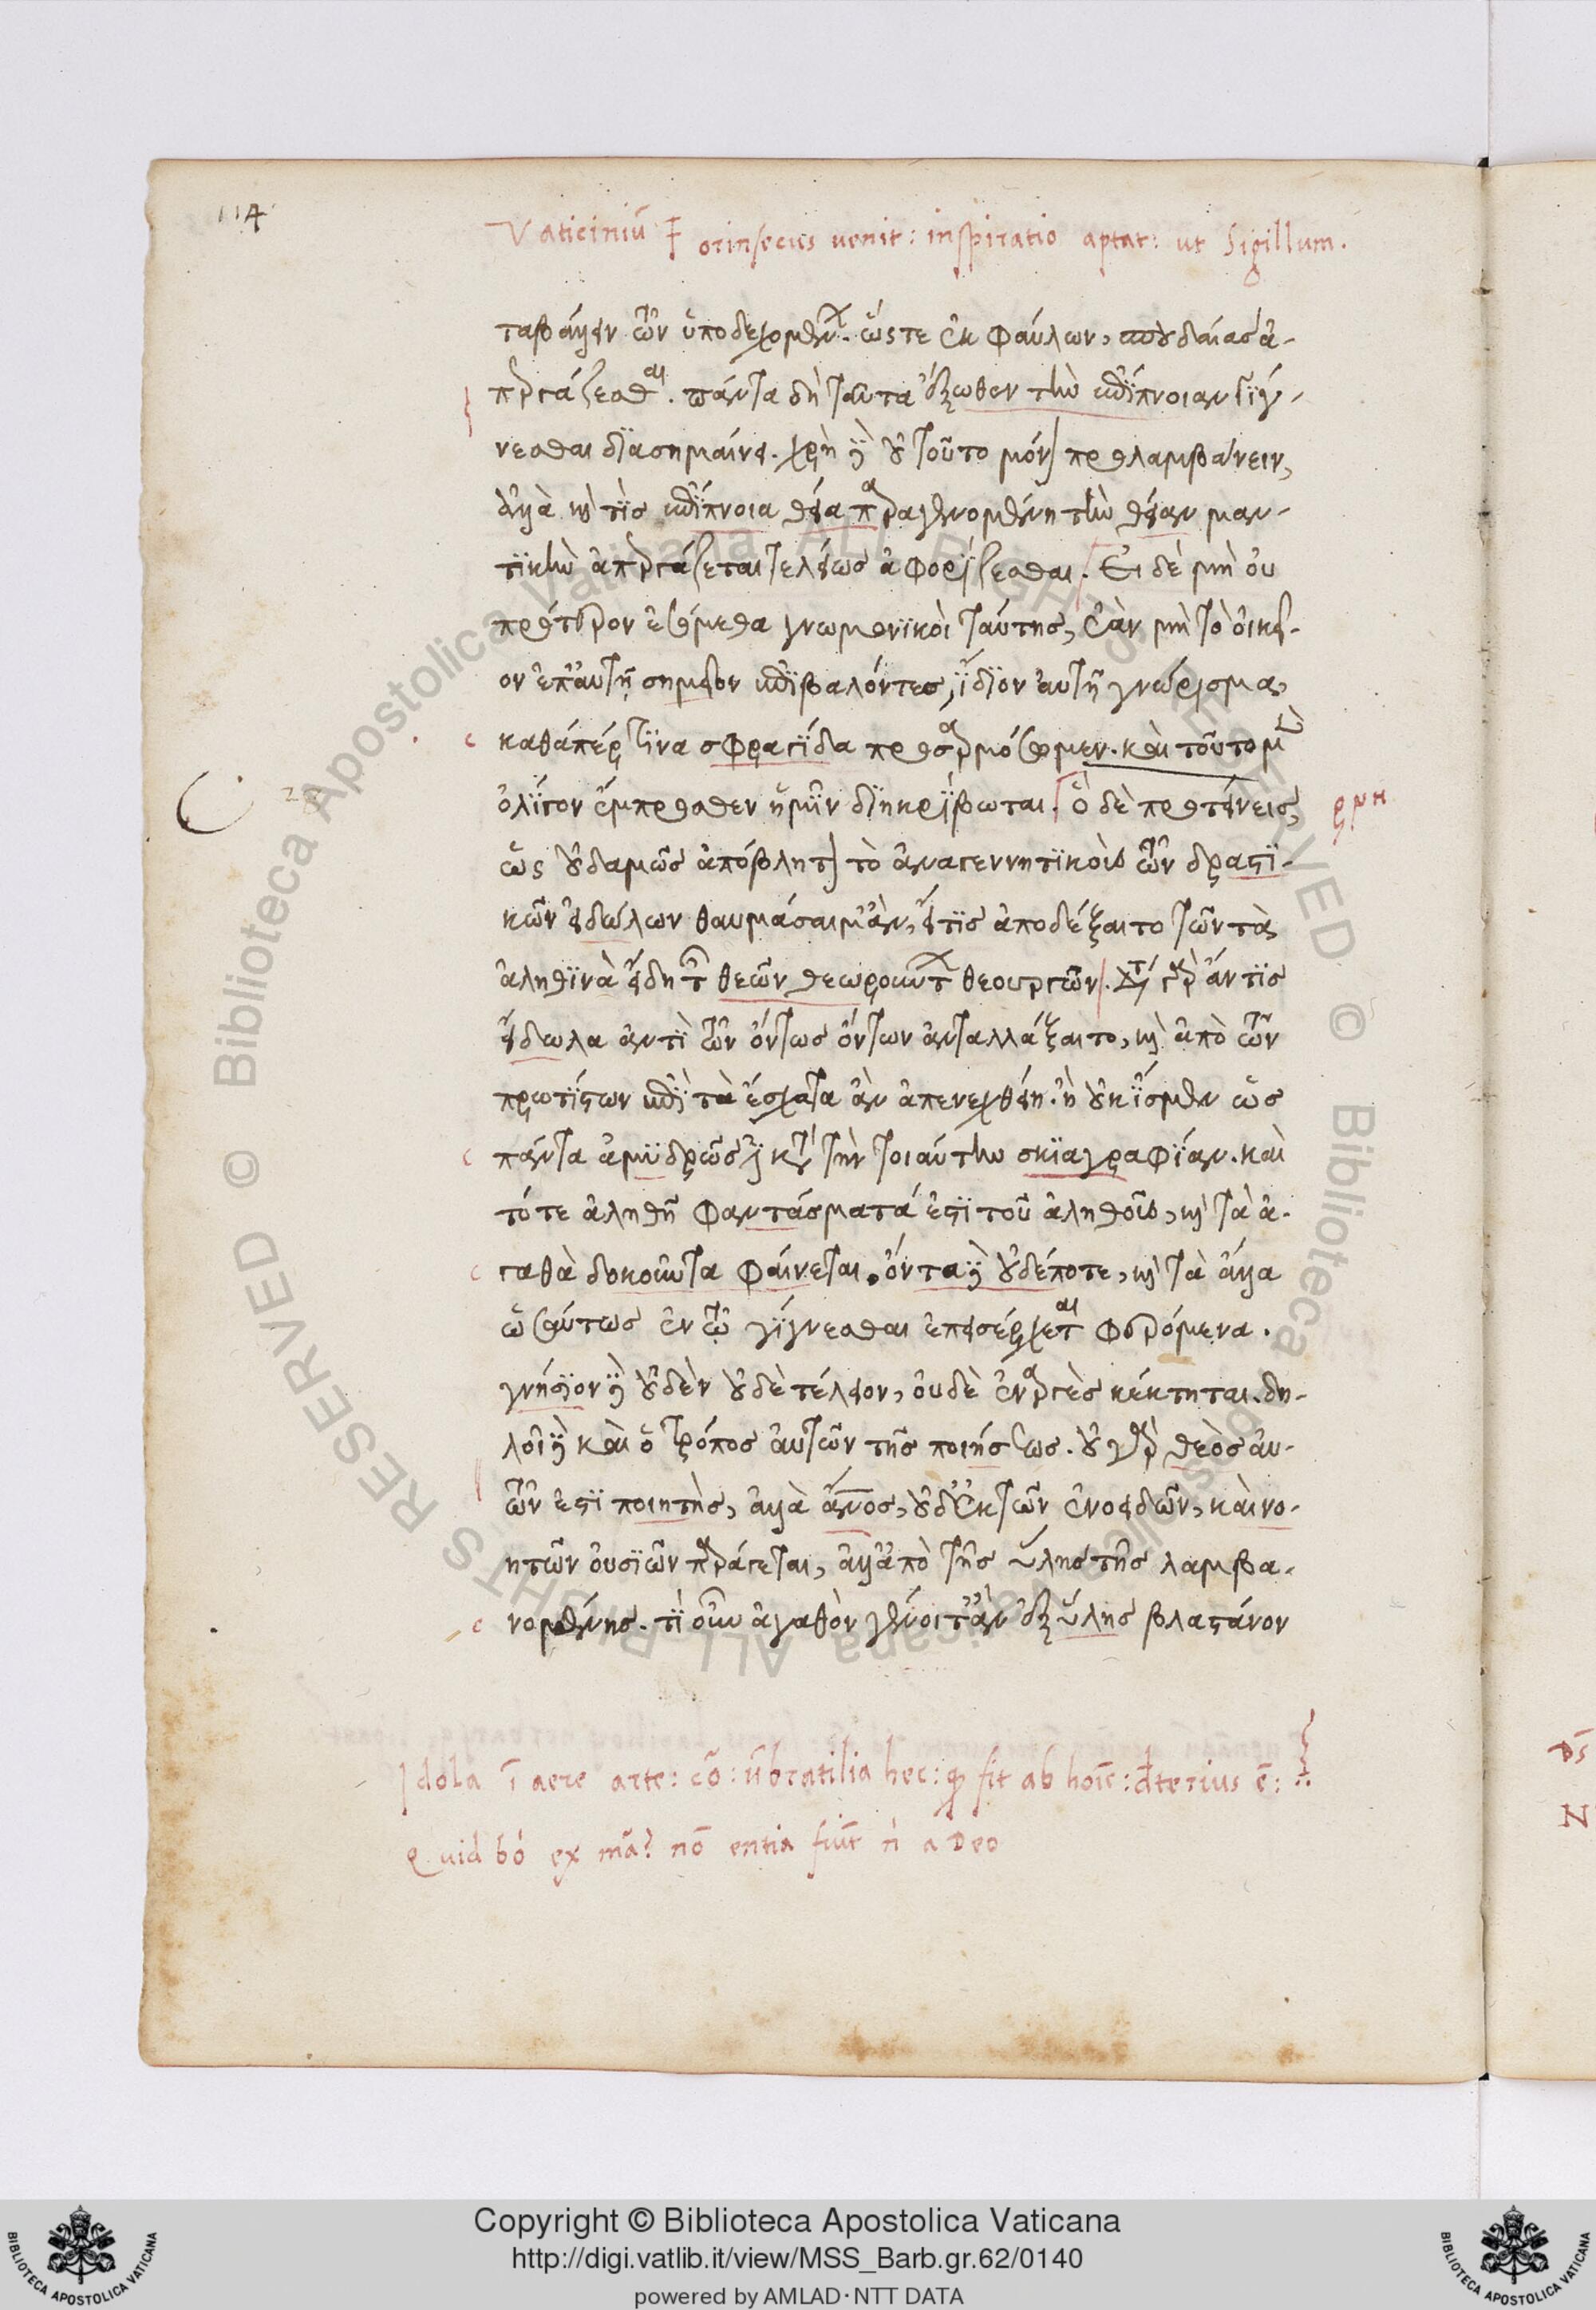 114
Vaticiniū Forinsecus uenit: inspiratio aptat: ut sigillum.
ταβάλλειν τῶν ὑποδεχομένων. ὥστε ἐκ φαύλων, σπουδαίας ἀ-
περγάζεσθαι. πάντα δὴ ταῦτα ἔξωθεν τὴν ἐπίπνοιαν γίγ-
νεσθαι διασημαίνει. χρὴ δὲ οὐ τοῦτο μόνον προλαμβάνειν,
ἀλλὰ καὶ τίς ἐπίπνοια θεία παραγενομένη τὴν θείαν μαν-
τικὴν ἀπεργάζεται τελείως ἀφορίζεσθαι. Εἰ δὲ μὴ οὐ
πρότερον ἐσόμεθα γνωμονικοὶ ταύτης, ἐὰν μὴ τὸ οἰκεῖ-
ον ἐπ' αὐτῇ σημεῖον ἐπιβαλόντες, ἴδιον αὐτῇ γνώρισμα,
καθάπερ τινα σφραγίδα προσαρμόσωμεν. καὶ τοῦτο μὲν
ὀλίγον ἔμπροσθεν ἡμῖν διηκρίβωται. ὃ δὲ προτείνεις,
ρμη
ὡς οὐδαμῶς ἀπόβλητον τὸ ἀναγεννητικοὺς τῶν δραστι-
κῶν εἰδώλων θαυμάσαιμ' ἂν, εἴ τις ἀποδέξαιτο τῶν τὰ
ἀληθινὰ εἴδη τῶν θεῶν θεωρούντων θεουργῶν. Διὰ τί γὰρ ἄν τις
εἴδωλα ἀντὶ τῶν ὄντως ὄντων ἀνταλλάξαιτο, καὶ ἀπὸ τῶν
πρωτίστων ἐπὶ τὰ ἔσχατα ἂν ἀπενεχθείη. ἢ οὐκ ἴσμεν ὡς
πάντα ἀμυδρῶς ἐστι κατὰ τὴν τοιαύτην σκιαγραφίαν. καὶ
τότε ἀληθῆ φαντάσματά ἐστι τοῦ ἀληθοῦς, καὶ τὰ ἀ-
γαθὰ δοκοῦντα φαίνεται. ὄντα δὲ οὐδέποτε, καὶ τὰ ἄλλα
ὡσαύτως ἐν τῷ γίγνεσθαι ἐπεισέρχεται φερόμενα.
γνήσιον δὲ οὐδὲν οὐδὲ τέλειον, οὐδὲ ἐναργὲς κέκτηται. δη-
λοῖ δὲ καὶ ὁ τρόπος αὐτῶν τῆς ποιήσεως. οὐ γὰρ θεὸς αὐ-
τῶν ἐστι ποιητὴς, ἀλλὰ ἄνος, οὐδ' ἐκ τῶν ἑνοειδῶν, καὶ νο-
ητῶν οὐσιῶν παράγεται, ἀλλ' ἀπὸ τῆς ὕλης τῆς λαμβα-
νομένης. τί οὖν ἀγαθὸν γένοιτ' ἂν ἐξ ὕλης βλαστάνον
Idola ī aere arte: cō: ūbratilia hec: qp fit ab hoīe: dterius ē:
Quid bo ex mā? nō entia fiūt n̄ a Deo
Copyright © Biblioteca Apostolica Vaticana
http://digi.vatlib.it/view/MSS_Barb.gr.62/0140
powered by AMLAD·NTT DATA